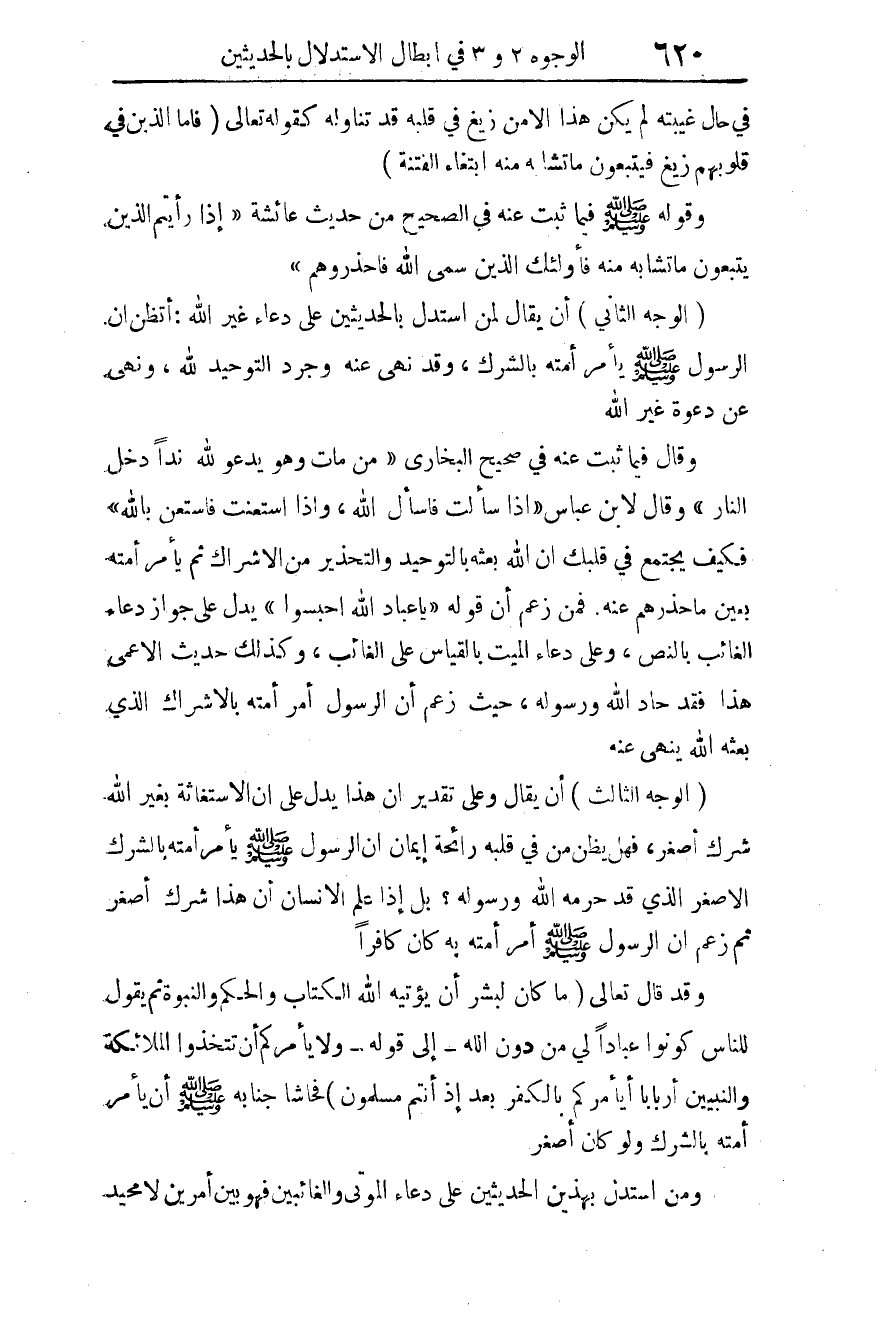 ٦٢٠ الوجوه ٢ و ٣ في ابطال الاستدلال بالحديثين
في حال غيبته لم يكن هذا الامن زيغ في قلبه قد تناوله كقوله تعالى ( فاما الذين في
قلوبهم زيغ فيتبعون ماتشا ه منه ابتغاء الفتنة )
وقوله ﷺ فيما ثبت عنه في الصحيح من حديث عائشة « إذا رأيتم الذين
يتبعون ماتشابه منه فأولئك الذين سمى الله فاحذروهم »
( الوجه الثاني ) أن يقال لمن استدل بالحديثين على دعاء غير الله : أتظن ان
الرسول ﷺ يأمر أمته بالشرك ، وقد نهى عنه وجرد التوحيد لله ، ونهى
عن دعوة غير الله
وقال فيما ثبت عنه في صحيح البخارى « من مات وهو يدعو لله نداً دخل
النار » وقال لابن عباس «اذا سألت فاسأل الله ، واذا استعنت فاستعن بالله»
فكيف يجتمع في قلبك ان الله بعثه بالتوحيد والتحذير من الاشراك ثم يأمر أمته
بعين ماحذرهم عنه. فمن زعم أن قوله «ياعباد الله احبسوا » يدل على جواز دعاء
الغائب بالنص ، وعلى دعاء الميت بالقياس على الغائب ، وكذلك حديث الاعمى
هذا فقد حاد الله ورسوله ، حيث زعم أن الرسول أمر أمته بالاشراك الذي
بعثه الله ينهى عنه
( الوجه الثالث ) أن يقال وعلى تقدير ان هذا يدل على ان الاستغاثة بغير الله
شرك أصغر، فهل يظن من في قلبه رائحة إيمان ان الرسول ﷺ يأمر أمته بالشرك
الاصغر الذي قد حرمه الله ورسوله ؟ بل إذا علم الانسان أن هذا شرك أصغر
ثم زعم ان الرسول ﷺ أمر أمته به كان كافراً
وقد قال تعالى ( ما كان لبشر أن يؤتيه الله الكتاب والحكم والنبوة ثم يقول
للناس كونوا عباداً لي من دون الله ـ إلى قوله ـ ولا يأمركم أن تتخذوا الملائكة
والنبيين أربابا أيأمركم بالكفر بعد إذ أنتم مسلمون ) فحاشا جنابه ﷺ أن يأمر
أمته بالشرك ولو كان أصغر
ومن استدل بهذين الحديثين على دعاء الموتى والغائبين فهو بين أمرين لا محيد